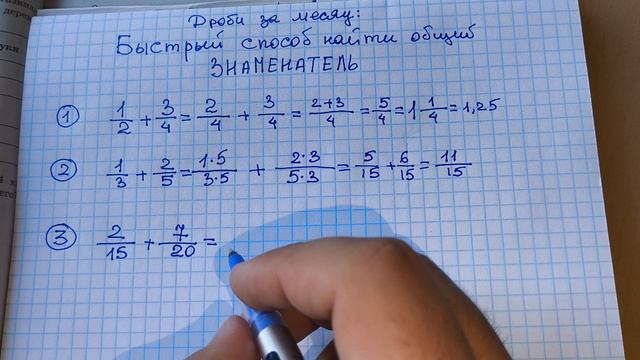 Дроби за месяц:
Быстрый способ найти общий
ЗНАМЕНАТЕЛЬ
① 1/2 + 3/4 = 2/4 + 3/4 = 2+3/4 = 5/4 = 1 1/4 = 1,25
② 1/3 + 2/5 = 1·5/3·5 + 2·3/5·3 = 5/15 + 6/15 = 11/15
③ 2/15 + 7/20 =